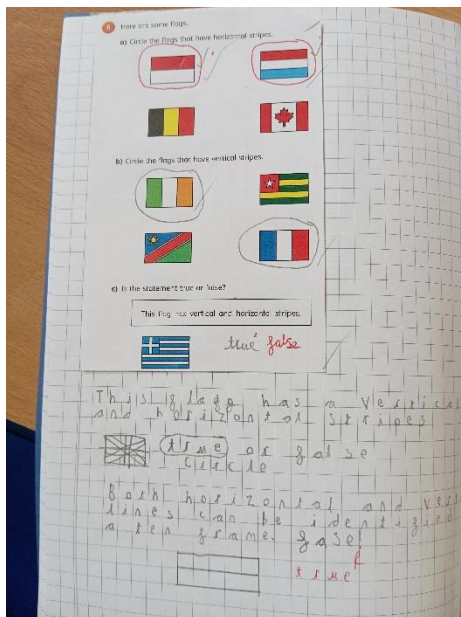 4 Here are some flags.
a) Circle the flags that have horizontal stripes.
b) Circle the flags that have vertical stripes.
c) Is the statement true or false?
This flag has vertical and horizontal stripes.
true false
This flag has a vertical
and horizontal stripes
true or false
circle
Both horizontal and ver
lines can be identified
a ten frame. fase!
true